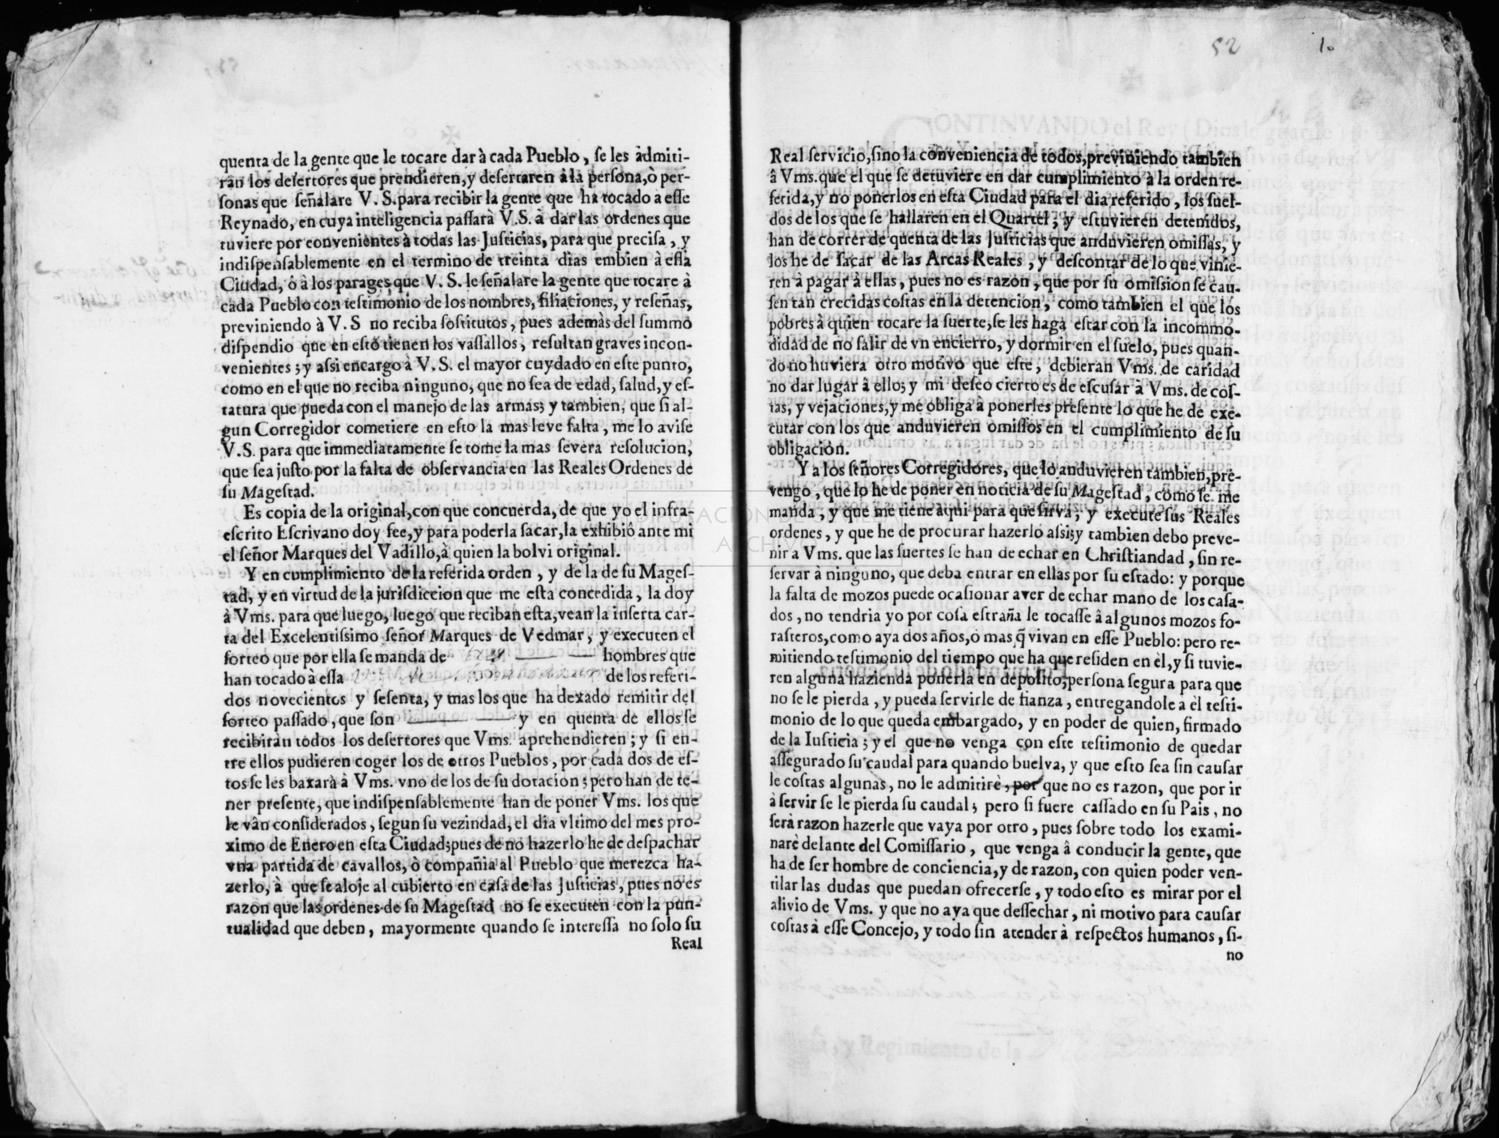 quenta de la gente que le tocare dar à cada Pueblo, se les admiti-
ràn los desertores que prendieren, y desertaren à la persona, ò per-
sonas que señalare V. S. para recibir la gente que ha tocado a esse
Reynado, en cuya inteligencia passarà V.S. à dar las ordenes que
tuviere por convenientes à todas las Justicias, para que precisa, y
indispensablemente en el termino de treinta dias embien à essa
Ciudad, ò à los parages que V. S. le señalare la gente que tocare à
cada Pueblo con testimonio de los nombres, filiaciones, y reseñas,
previniendo à V. S no reciba sostitutos, pues ademàs del summo
dispendio que en esto tienen los vassallos, resultan graves incon-
venientes; y assi encargo à V. S. el mayor cuydado en este punto,
como en el que no reciba ninguno, que no sea de edad, salud, y es-
tatura que pueda con el manejo de las armas; y tambien, que si al-
gun Corregidor cometiere en esto la mas leve falta, me lo avise
V.S. para que immediatamente se tome la mas severa resolucion,
que sea justo por la falta de observancia en las Reales Ordenes de
su Magestad.
Es copia de la original, con que concuerda, de que yo el infra-
escrito Escrivano doy fee, y para poderla sacar, la exhibiò ante mi
el señor Marques del Vadillo, à quien la bolvi original.
Y en cumplimiento de la referida orden, y de la de su Mages-
tad, y en virtud de la jurisdiccion que me esta concedida, la doy
à Vms. para que luego, luego que reciban esta, vean la inserta car-
ta del Excelentissimo señor Marques de Vedmar, y executen el
sorteo que por ella se manda de hombres que
han tocado à essa de los referi-
dos novecientos y sesenta, y mas los que ha dexado remitir del
sorteo passado, que son y en quenta de ellos se
recibiràn todos los desertores que Vms. aprehendieren; y si en-
tre ellos pudieren coger los de otros Pueblos, por cada dos de es-
tos se les baxarà à Vms. vno de los de su dotacion; pero han de te-
ner presente, que indispensablemente han de poner Vms. los que
le vàn considerados, segun su vezindad, el dia vltimo del mes pro-
ximo de Enero en esta Ciudad; pues de no hazerlo he de despachar
vna partida de cavallos, ò compañia al Pueblo que merezca ha-
zerlo, à que se aloje al cubierto en casa de las Justicias, pues no es
razon que las ordenes de su Magestad no se executen con la pun-
tualidad que deben, mayormente quando se interessa no solo su
Real
52 1.
Real servicio, sino la conveniencia de todos, previniendo tambien
à Vms. que el que se detuviere en dar cumplimiento à la orden re-
ferida, y no ponerlos en esta Ciudad para el dia referido, los suel-
dos de los que se hallaren en el Quartel, y estuvieren detenidos,
han de correr de quenta de las Justicias que anduvieren omissas, y
los he de sacar de las Arcas Reales, y descontar de lo que vinie-
ren à pagar à ellas, pues no es razon, que por su omission se cau-
sen tan crecidas costas en la detencion, como tambien el que los
pobres à quien tocare la suerte, se les haga estar con la incommo-
didad de no salir de vn encierro, y dormir en el suelo, pues quan-
do no huviera otro motivo que este, debieran Vms. de caridad
no dar lugar à ello; y mi deseo cierto es de escusar à Vms. de cos-
tas, y vejaciones, y me obliga à ponerles presente lo que he de exe-
cutar con los que anduvieren omissos en el cumplimiento de su
obligacion.
Y a los señores Corregidores, que lo anduvieren tambien, pre-
vengo, que lo he de poner en noticia de su Magestad, como se me
manda, y que me tiene aqui para que sirva, y execute sus Reales
ordenes, y que he de procurar hazerlo assi; y tambien debo preve-
nir a Vms. que las suertes se han de echar en Christiandad, sin re-
servar à ninguno, que deba entrar en ellas por su estado: y porque
la falta de mozos puede ocasionar aver de echar mano de los casa-
dos, no tendria yo por cosa estraña le tocasse à algunos mozos fo-
rasteros, como aya dos años, ò mas q̃ vivan en esse Pueblo: pero re-
mitiendo testimonio del tiempo que ha que residen en èl, y si tuvie-
ren alguna hazienda ponerla en deposito, persona segura para que
no se le pierda, y pueda servirle de fianza, entregandole a èl testi-
monio de lo que queda embargado, y en poder de quien, firmado
de la Iusticia; y el que no venga con este testimonio de quedar
assegurado su caudal para quando buelva, y que esto sea sin causar
le costas algunas, no le admitirè, por que no es razon, que por ir
à servir se le pierda su caudal; pero si fuere cassado en su Pais, no
serà razon hazerle que vaya por otro, pues sobre todo los exami-
narè delante del Comissario, que venga à conducir la gente, que
ha de ser hombre de conciencia, y de razon, con quien poder ven-
tilar las dudas que puedan ofrecerse, y todo esto es mirar por el
alivio de Vms. y que no aya que dessechar, ni motivo para causar
costas à esse Concejo, y todo sin atender à respectos humanos, si-
no